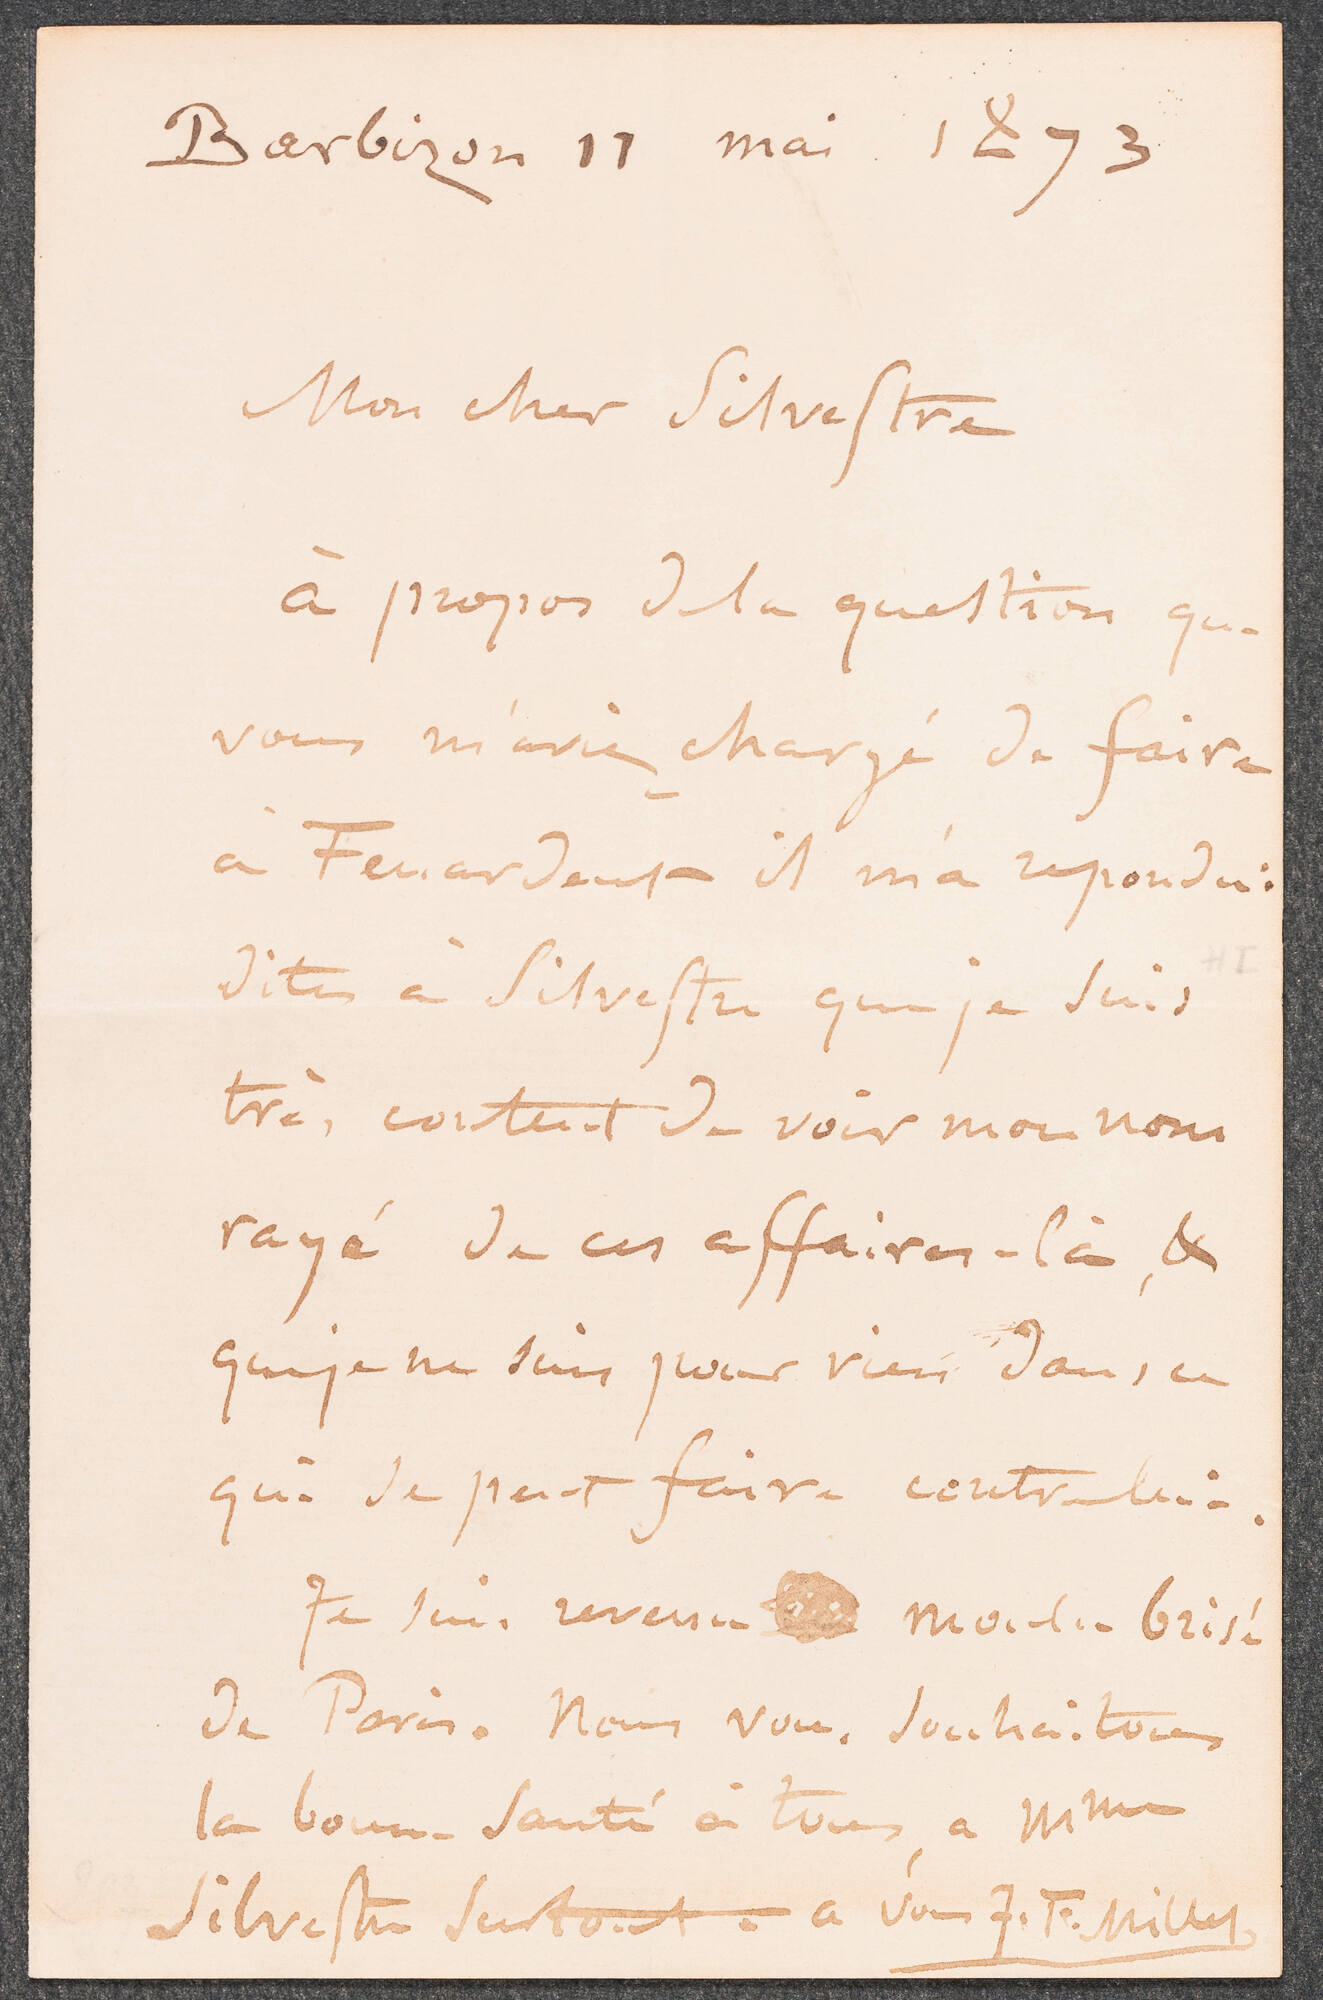 Barbizon 11 mai 1873
Mon cher Silvestre
à propos de la question que
vous m'aviez chargé de faire
à Feuardent il m'a repondu:
dites à Silvestre que je suis
très content de voir mon nom
rayé de ces affaires-là, &
que je ne suis pour rien dans ce
qui se peut faire contre lui.
Je suis revenu moulu brisé
de Paris. Nous vous souhaitons
la bonne santé à tous, a Mme
Silvestre surtout. a vous J. F. Millet